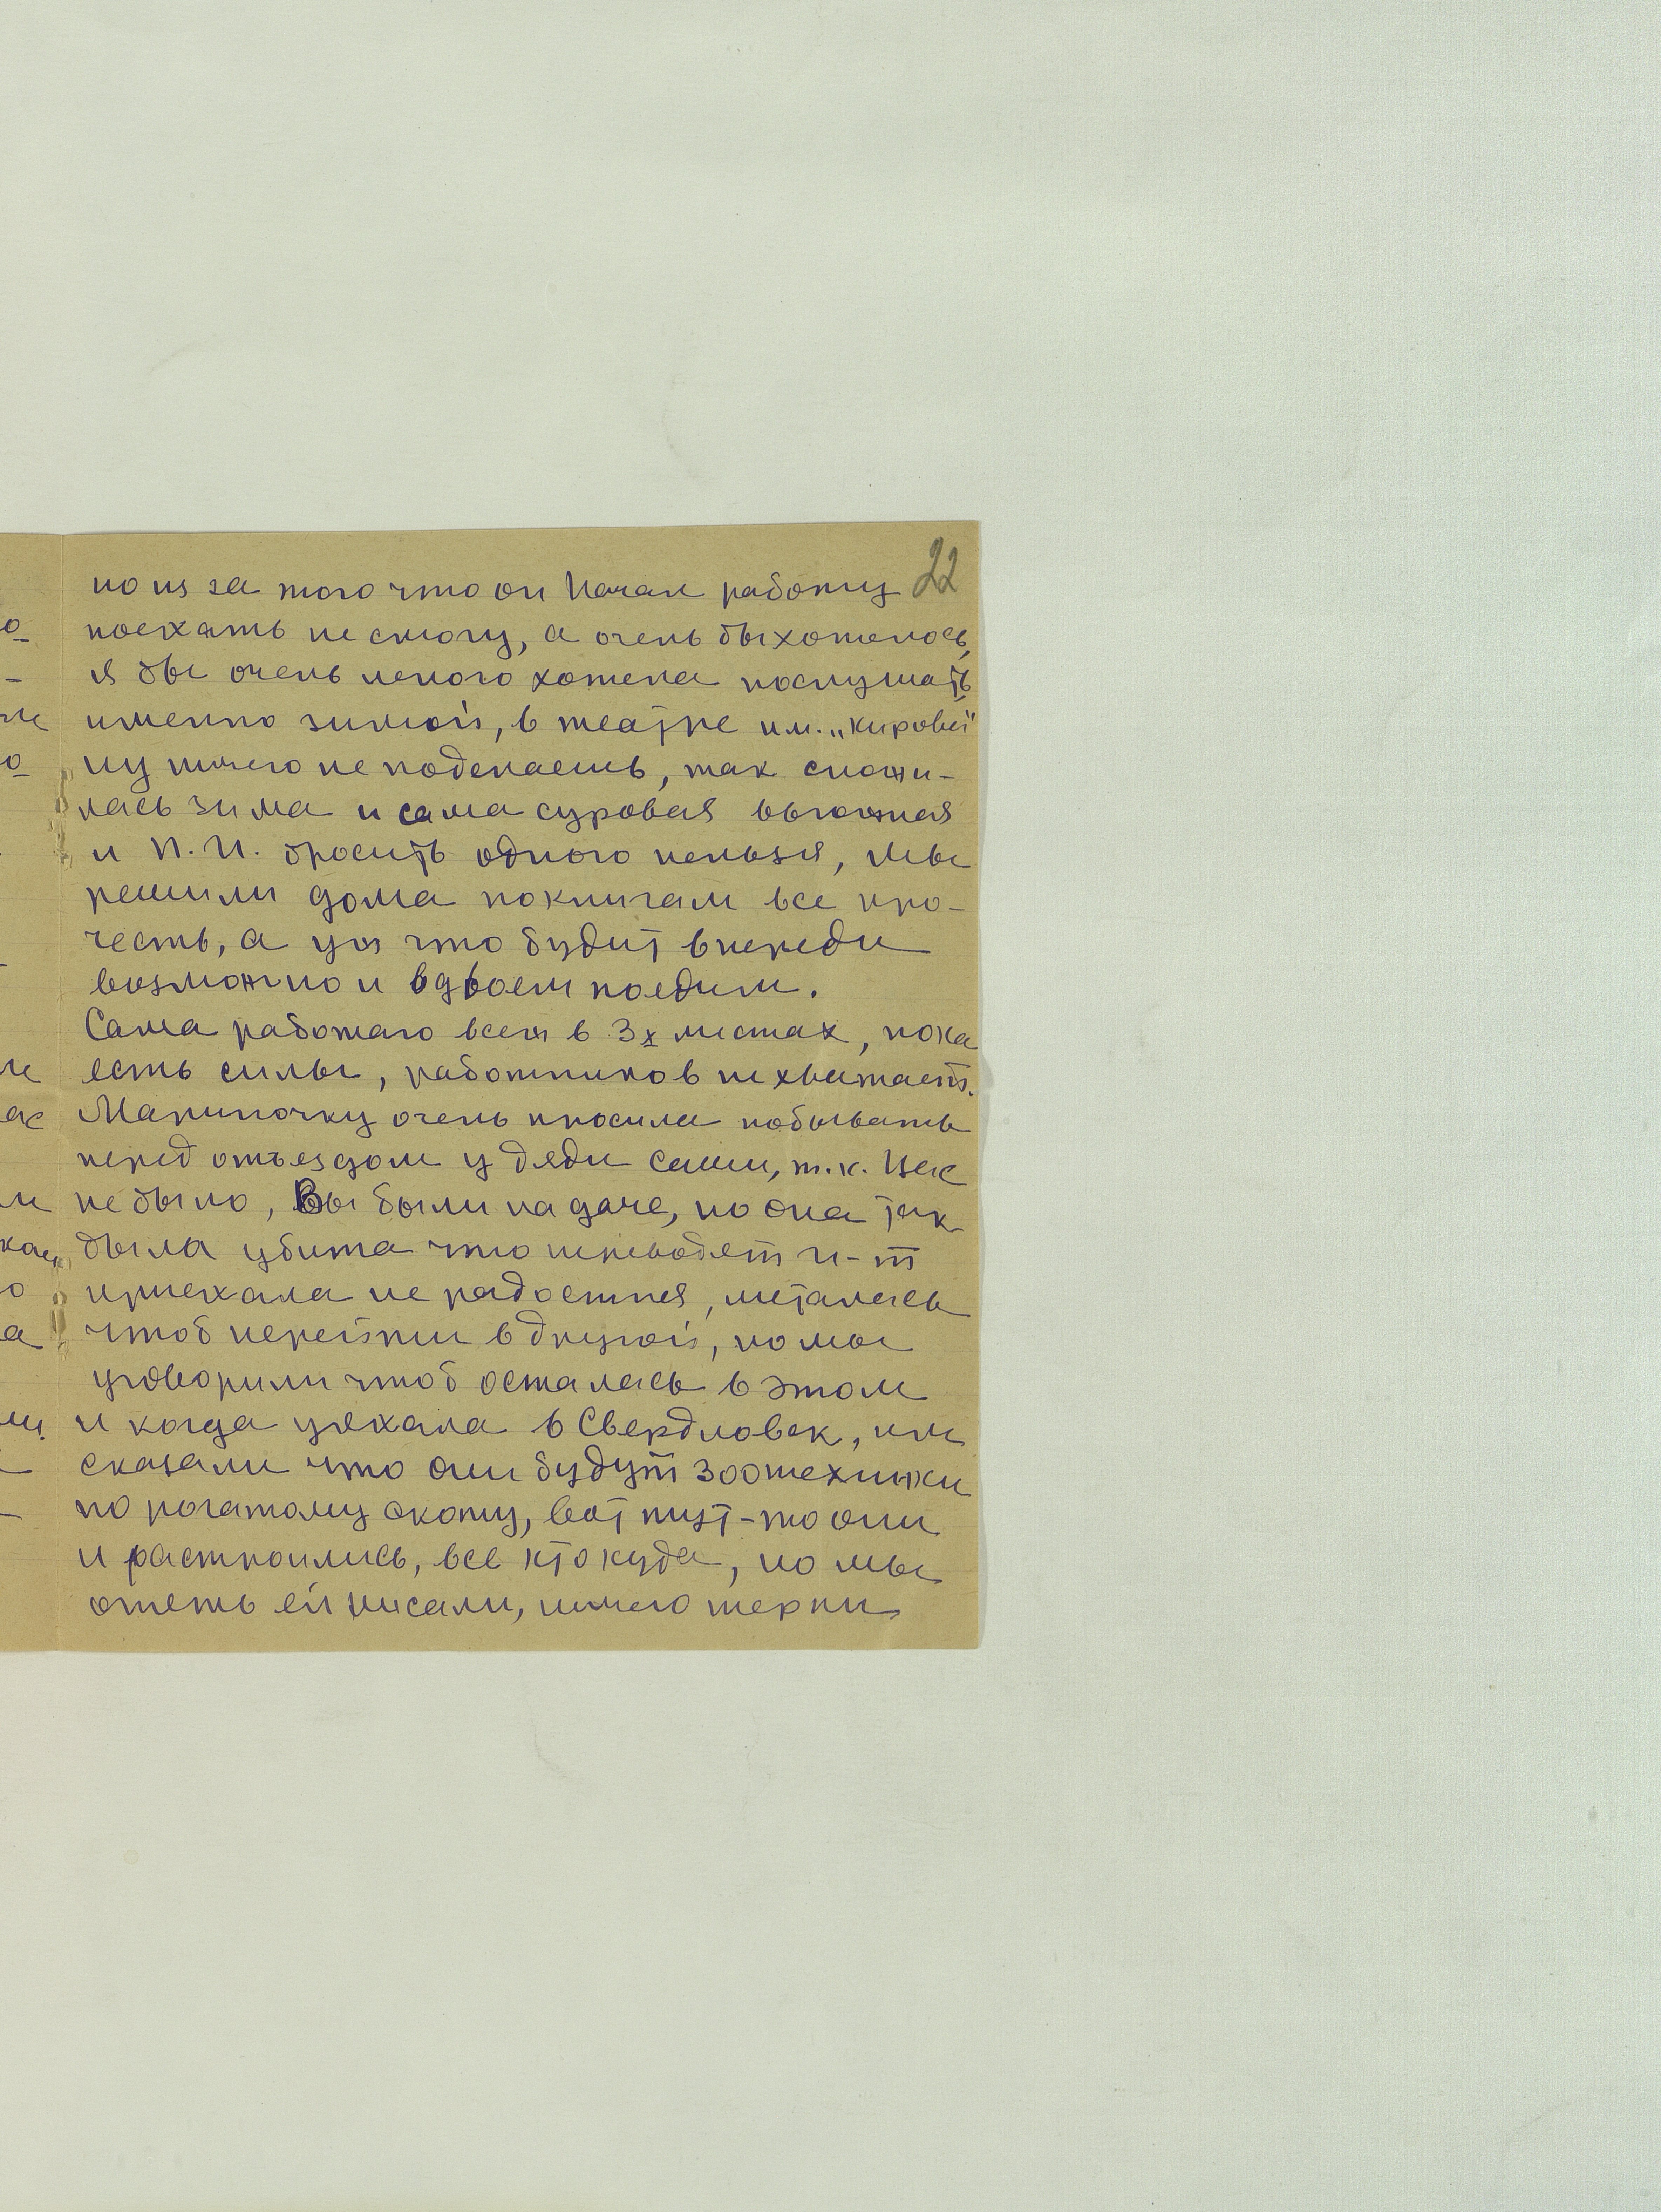 22
но из за того что он начал работу
поехать не смогу, а очень бы хотелось,
я бы очень много хотела послушать
именно зимой, в театре им. „Кирова"
ну ничего не поделаешь, так сложи-
лась зима и сама суровая вьюжная
и П.И. бросить одного нельзя, мы
решили дома по книгам все про-
честь, а уж что будит впереди
возможно и вдвоем поедим.
Сама работаю всеж в 3х местах, пока
есть силы, работников не хватает.
Мариночку очень просила побывать
перед отъездом у дяди Саши, т.к. Вас
не было, Вы были на даче, но она так
была убита что переводят и-т
приехала не радостная, металась
чтоб перейти в другой, но мы
уговорили чтоб осталась в этом
и когда уехала в Свердловск, им
сказали что они будут зоотехники
по рогатому скоту, вот тут-то они
и растроились, все кто куда, но мы
опять ей писали, ничего терпи